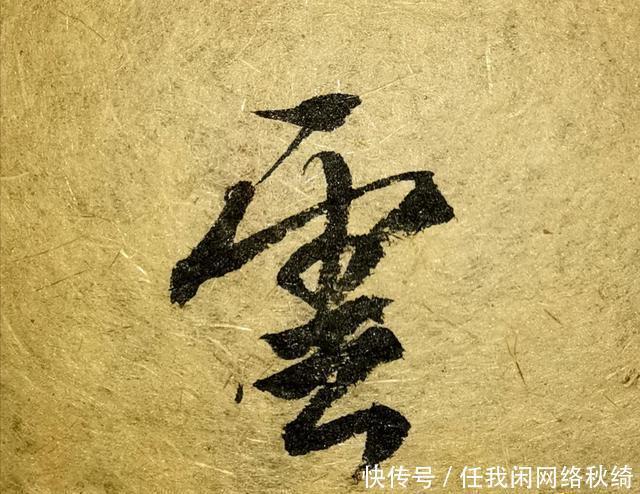 雲
快传号/任我闲网络秋绮